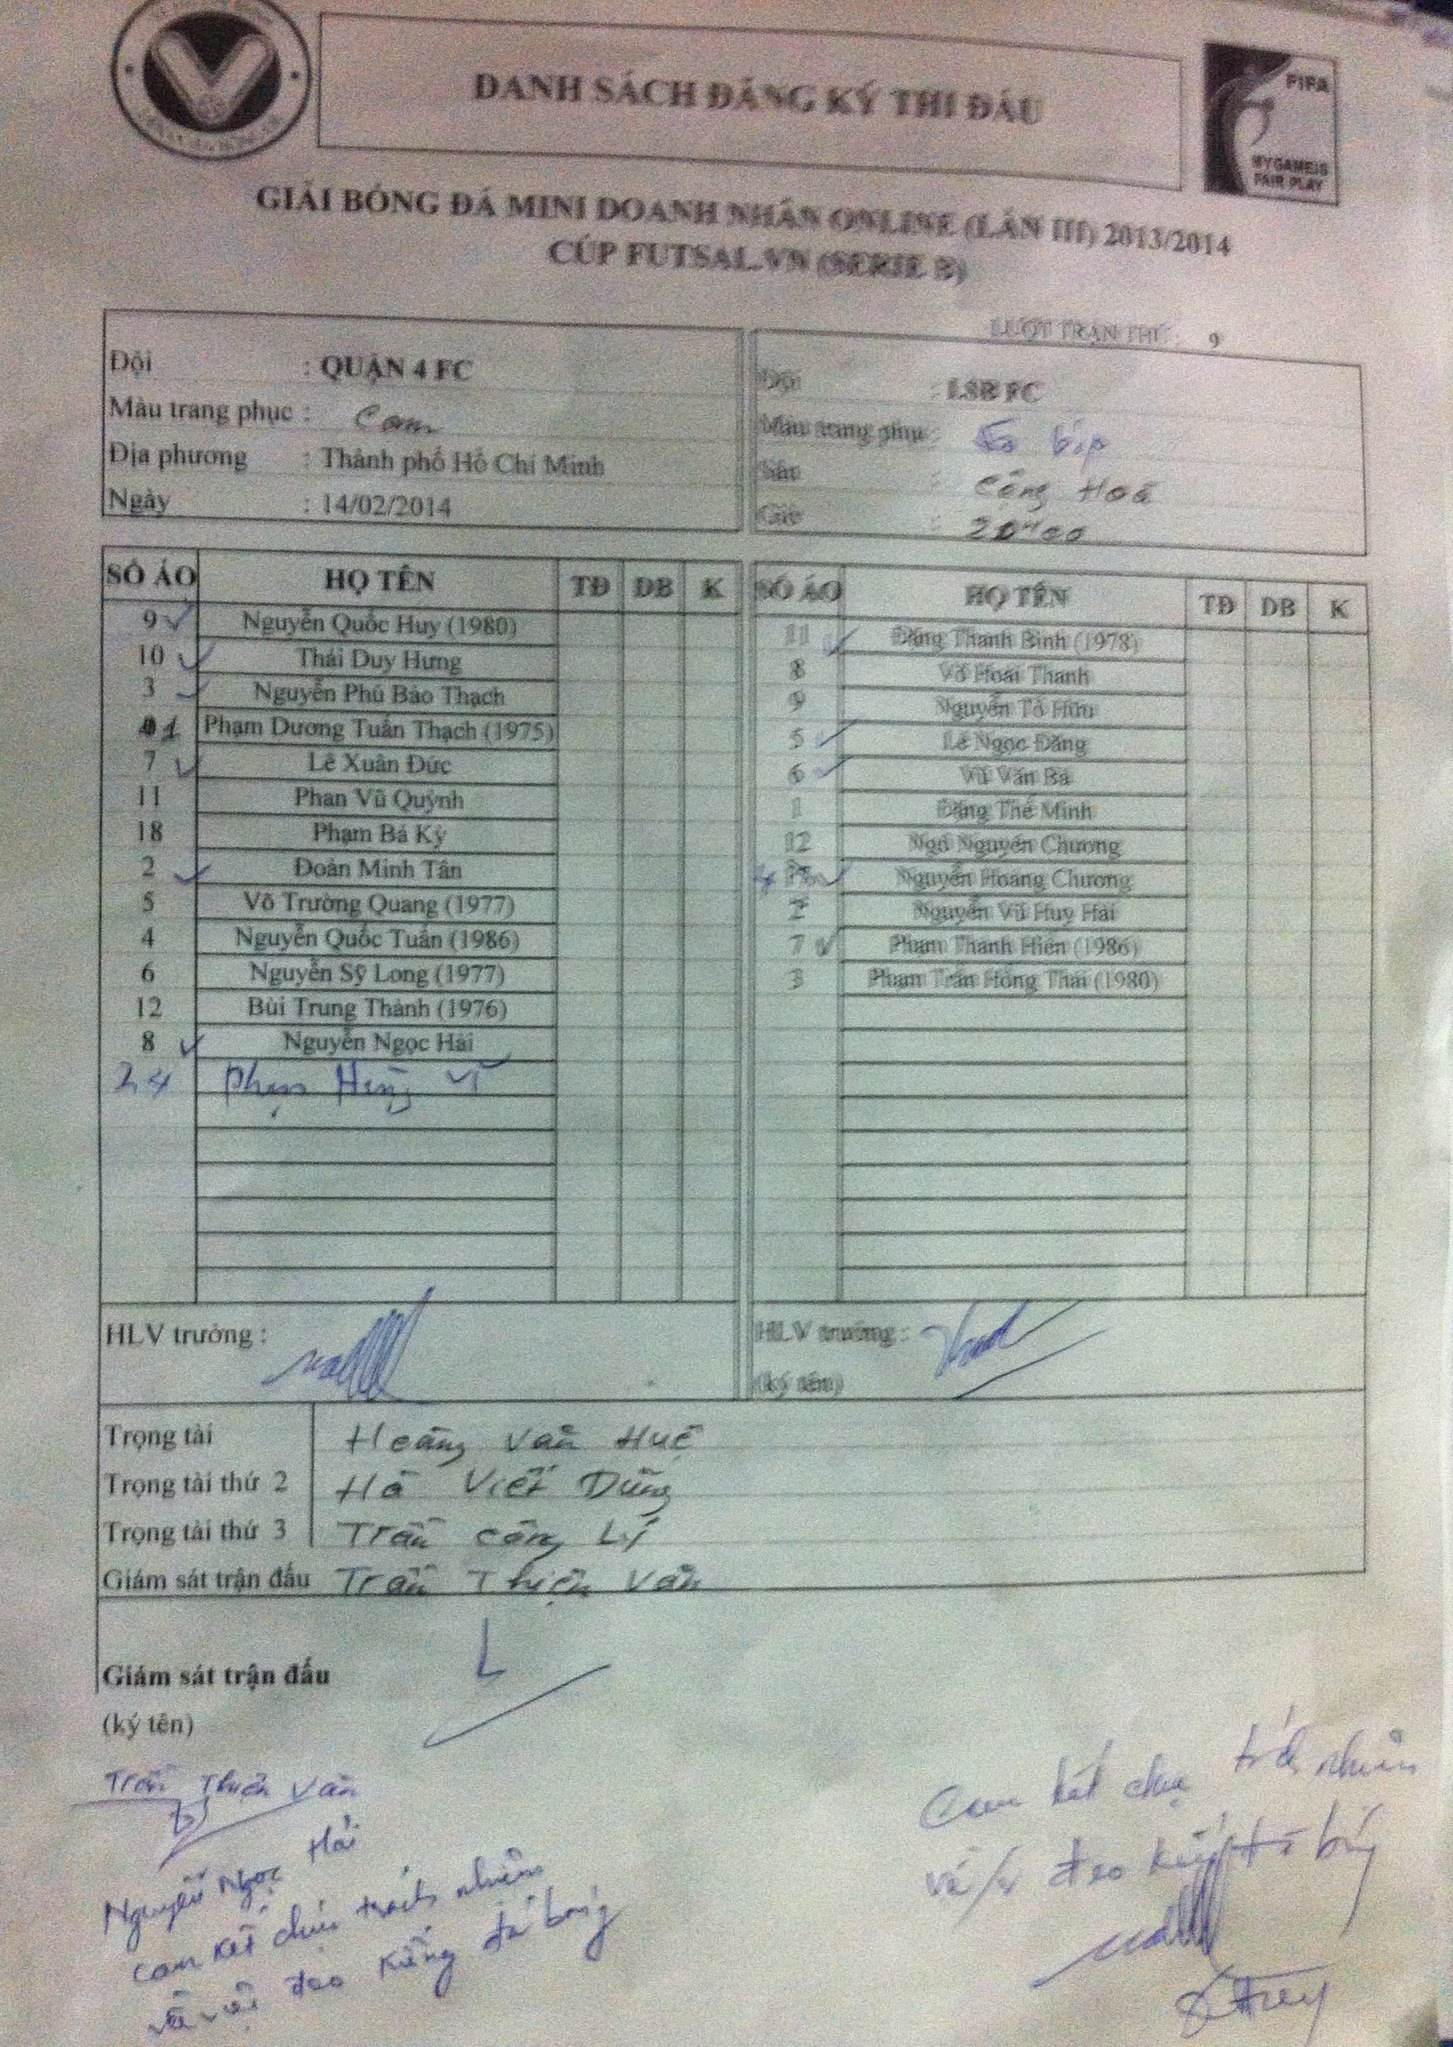 DANH SÁCH ĐĂNG KÝ THI ĐẤU
FIFA
MY GAME IS
FAIR PLAY
GIẢI BÓNG ĐÁ MINI DOANH NHÂN ONLINE (LẦN III) 2013/2014
CÚP FUTSAL.VN (SERIE B)
LƯỢT TRẬN THỨ : 9
Đội : QUẬN 4 FC
Màu trang phục : Cam
Địa phương : Thành phố Hồ Chí Minh
Ngày : 14/02/2014
Đội : LSB FC
Màu trang phục :
Sân : Cộng Hoà
Giờ : 20H00
SỐ ÁO HỌ TÊN TĐ DB K
9 Nguyễn Quốc Huy (1980)
10 Thái Duy Hưng
3 Nguyễn Phú Bảo Thạch
1 Phạm Dương Tuấn Thạch (1975)
7 Lê Xuân Đức
11 Phan Vũ Quỳnh
18 Phạm Bá Kỳ
2 Đoàn Minh Tân
5 Võ Trường Quang (1977)
4 Nguyễn Quốc Tuấn (1986)
6 Nguyễn Sỹ Long (1977)
12 Bùi Trung Thành (1976)
8 Nguyễn Ngọc Hải
24 Phạm Hùng Vĩ
SỐ ÁO HỌ TÊN TĐ DB K
11 Đặng Thanh Bình (1978)
8 Võ Hoài Thanh
9 Nguyễn Tố Hữu
5 Lê Ngọc Đăng
6 Vũ Văn Ba
1 Đặng Thế Minh
12 Ngô Nguyên Chương
Nguyễn Hoàng Chương
2 Nguyễn Vũ Huy Hải
7 Phạm Thanh Hiền (1986)
3 Phạm Trần Hồng Thái (1980)
HLV trưởng :
HLV trưởng :
(ký tên)
Trọng tài Hoàng Văn Huê
Trọng tài thứ 2 Hà Viết Dũng
Trọng tài thứ 3 Trần Công Lý
Giám sát trận đấu Trần Thiện Văn
Giám sát trận đấu
(ký tên)
Trần Thiện Văn
Nguyễn Ngọc Hải
cam kết chịu trách nhiệm
về việc đeo kiếng đá bóng
Cam kết chịu trách nhiệm
về đeo kiếng đá bóng
Huy